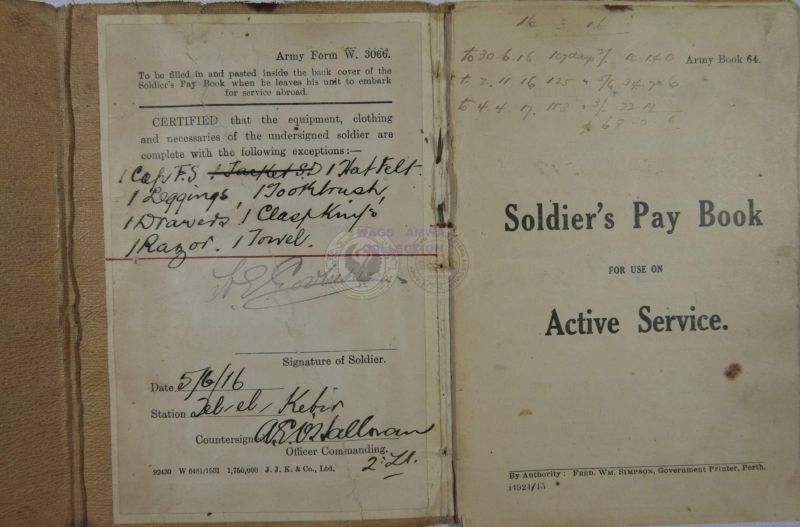 Army Form W. 3066.
To be filled in and pasted inside the back cover of the
Soldier's Pay Book when he leaves his unit to embark
for service abroad.
CERTIFIED that the equipment, clothing
and necessaries of the undersigned soldier are
complete with the following exceptions:—
1 Cap F.S. 1 Jacket S.D 1 Hat Felt.
1 Leggings, 1 Toothbrush,
1 Drawers, 1 Clasp Knife
1 Razor. 1 Towel.
WAGS
COLLECTION
Signature of Soldier.
Date 5/6/16
Station Tel-el-Kebir
Countersigned A.E. O'Halloran
Officer Commanding.
2: Lt.
92430 W 6481/1531 1,750,000 J. J. K. & Co., Ltd.
16 16
to 30.6.16 107 days 2/ 10.14.0
Army Book 64.
t. 2.11.16 125 5/6 34.7.6
to 4.4.17. 153 3/
Soldier's Pay Book
FOR USE ON
Active Service.
By Authority: FRED. WM. SIMPSON, Government Printer, Perth.
14924/15